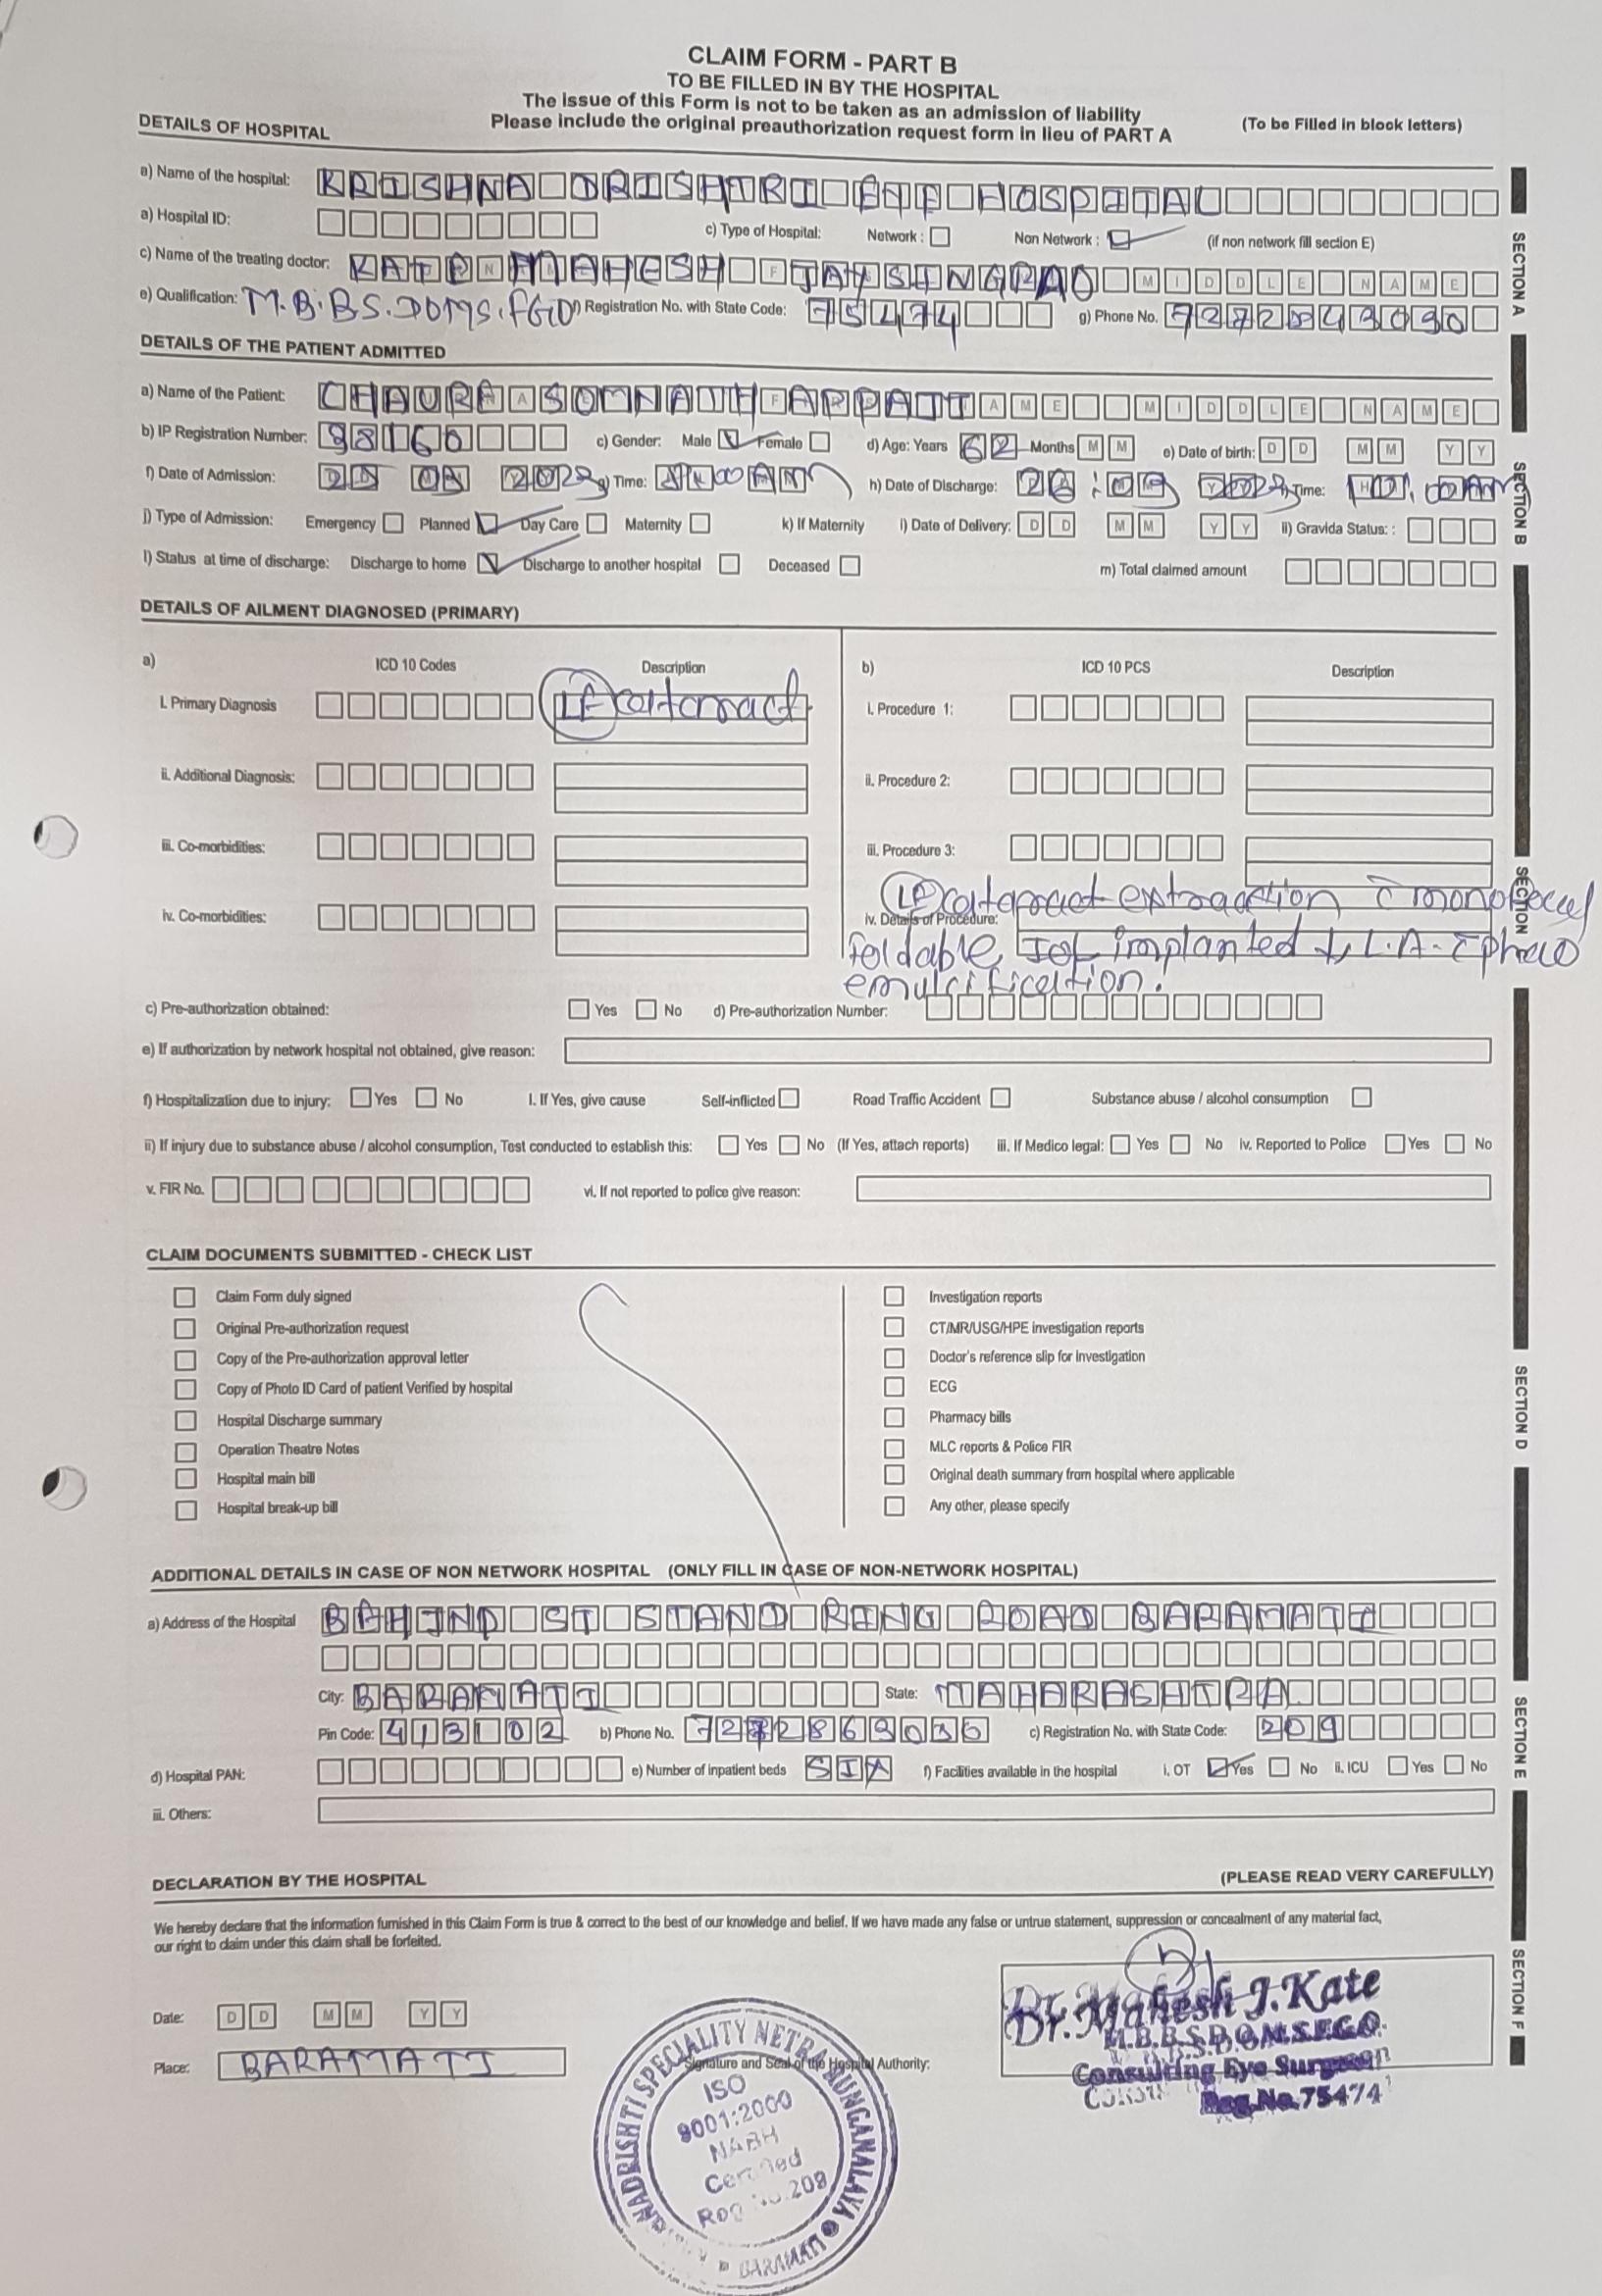 CLAIM FORM - PART B
TO BE FILLED IN BY THE HOSPITAL
The issue of this Form is not to be taken as an admission of liability
Please include the original preauthorization request form in lieu of PART A
(To be Filled in block letters)
DETAILS OF HOSPITAL
a) Name of the hospital: KRISHNA DRISHTRI EYE HOSPITAL
a) Hospital ID: c) Type of Hospital: Network : Non Network : (if non network fill section E)
c) Name of the treating doctor: KATE MAHESH JAYSINGRAO MIDDLE NAME
e) Qualification: M.B.BS. DOMS. FGO f) Registration No. with State Code: 75474 g) Phone No.
SECTION A
DETAILS OF THE PATIENT ADMITTED
a) Name of the Patient: CHAURE SOMNATH MIDDLE NAME
b) IP Registration Number: c) Gender: Male Female d) Age: Years 62 Months M M e) Date of birth: D D M M Y Y
f) Date of Admission: g) Time: h) Date of Discharge: Time:
j) Type of Admission: Emergency Planned Day Care Maternity k) If Maternity i) Date of Delivery: D D M M Y Y ii) Gravida Status: :
l) Status at time of discharge: Discharge to home Discharge to another hospital Deceased m) Total claimed amount
SECTION B
DETAILS OF AILMENT DIAGNOSED (PRIMARY)
a) ICD 10 Codes Description b) ICD 10 PCS Description
I. Primary Diagnosis LE cataract i. Procedure 1:
ii. Additional Diagnosis: ii. Procedure 2:
iii. Co-morbidities: iii. Procedure 3:
iv. Co-morbidities: iv. Details of Procedure: LE cataract extraction c monofocal
foldable IOL implanted L.A. c phaco
emulcification.
SECTION
c) Pre-authorization obtained: Yes No d) Pre-authorization Number:
e) If authorization by network hospital not obtained, give reason:
f) Hospitalization due to injury: Yes No I. If Yes, give cause Self-inflicted Road Traffic Accident Substance abuse / alcohol consumption
ii) If injury due to substance abuse / alcohol consumption, Test conducted to establish this: Yes No (If Yes, attach reports) iii. If Medico legal: Yes No iv. Reported to Police Yes No
v. FIR No. vi. If not reported to police give reason:
CLAIM DOCUMENTS SUBMITTED - CHECK LIST
Claim Form duly signed
Original Pre-authorization request
Copy of the Pre-authorization approval letter
Copy of Photo ID Card of patient Verified by hospital
Hospital Discharge summary
Operation Theatre Notes
Hospital main bill
Hospital break-up bill
Investigation reports
CT/MR/USG/HPE investigation reports
Doctor's reference slip for investigation
ECG
Pharmacy bills
MLC reports & Police FIR
Original death summary from hospital where applicable
Any other, please specify
SECTION D
ADDITIONAL DETAILS IN CASE OF NON NETWORK HOSPITAL (ONLY FILL IN CASE OF NON-NETWORK HOSPITAL)
a) Address of the Hospital BEHIND ST STAND RING ROAD BARAMATI
City: BARAMATI State: MAHARASHTRA
Pin Code: 413102 b) Phone No. c) Registration No. with State Code: 209
d) Hospital PAN: e) Number of inpatient beds SIX f) Facilities available in the hospital i. OT Yes No ii. ICU Yes No
iii. Others:
SECTION E
DECLARATION BY THE HOSPITAL (PLEASE READ VERY CAREFULLY)
We hereby declare that the information furnished in this Claim Form is true & correct to the best of our knowledge and belief. If we have made any false or untrue statement, suppression or concealment of any material fact,
our right to claim under this claim shall be forfeited.
SECTION F
Date: D D M M Y Y
Place: BARAMATI
Signature and Seal of the Hospital Authority:
Dr. Mahesh J. Kate
M.B.B.S.D.O.M.S.F.G.O.
Consulting Eye Surgeon
Reg.No.75474
SPECIALITY NETRARUNGANALAYA
BARAMATI
ISO
9001:2000
NABH
Certified
Reg No. 209